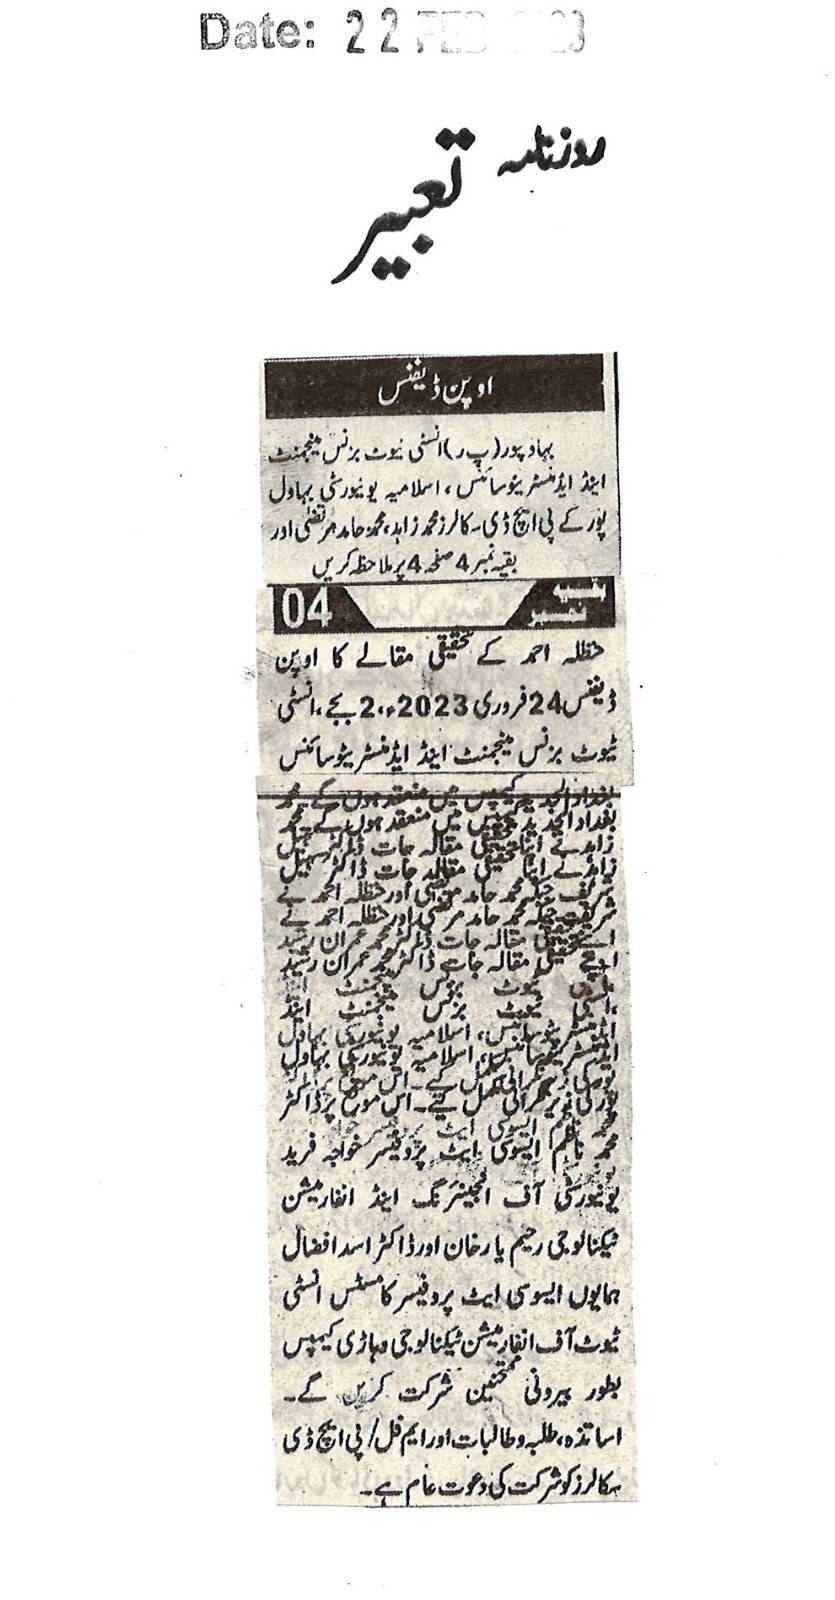 Date: 22 FEB 2023
روزنامہ تعبیر
اوپن ڈیفنس
بہاولپور(پ ر)انسٹی ٹیوٹ بزنس مینجمنٹ
اینڈ ایڈمنسٹریٹو سائنس، اسلامیہ یونیورسٹی بہاول
پور کے پی ایچ ڈی سکالرز محمد زاہد، محمد حامد مرتضٰی اور
بقیہ نمبر 4 صفحہ 4 پر ملاحظہ کریں
بقیہ نمبر 04
حنظلہ احمد کے تحقیقی مقالے کا اوپن
ڈیفنس 24 فروری 2023ء، 2 بجے، انسٹی
ٹیوٹ بزنس مینجمنٹ اینڈ ایڈمنسٹریٹو سائنس
بغداد الجدید کیمپس میں منعقد ہوں گے۔ محمد
زاہد نے اپنا تحقیقی مقالہ جات ڈاکٹر سہیل
شریف جبکہ محمد حامد مرتضٰی اور حنظلہ احمد نے
اپنے تحقیقی مقالہ جات ڈاکٹر محمد عمران رشید
انسٹی ٹیوٹ بزنس مینجمنٹ اینڈ
ایڈمنسٹریٹو سائنس، اسلامیہ یونیورسٹی بہاول
پور کی زیر نگرانی مکمل کیے۔ اس موقع پر ڈاکٹر
محمد ناظم ایسوسی ایٹ پروفیسر خواجہ فرید
یونیورسٹی آف انجینئرنگ اینڈ انفارمیشن
ٹیکنالوجی رحیم یار خان اور ڈاکٹر اسد افضال
ہمایوں ایسوسی ایٹ پروفیسر کامسٹس انسٹی
ٹیوٹ آف انفارمیشن ٹیکنالوجی وہاڑی کیمپس
بطور بیرونی ممتحنین شرکت کریں گے۔
اساتذہ، طلبہ و طالبات اور ایم فل/پی ایچ ڈی
سکالرز کو شرکت کی دعوت عام ہے۔